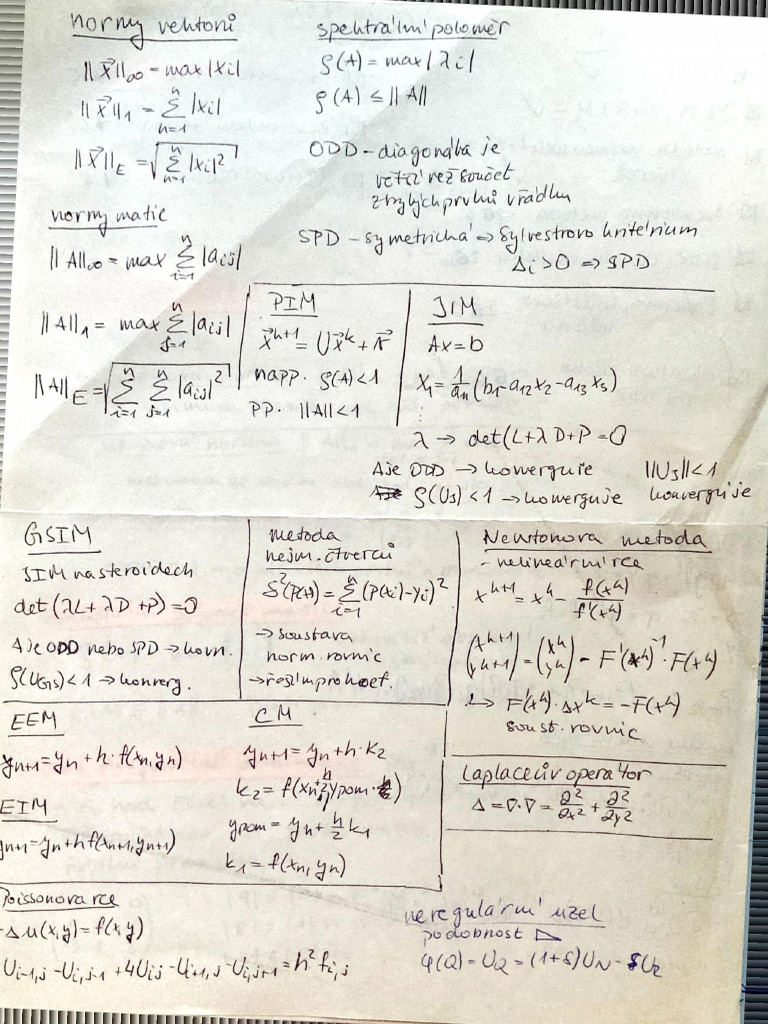 normy vektorů
||x⃗||∞ = max |xi|
||x⃗||₁ = Σ_{n=1}^{n} |xi|
||x⃗||_E = √(Σ_{n=1}^{n} |xi|²)
spektrální poloměr
ρ(A) = max |λi|
ρ(A) ≤ ||A||
ODD - diagonála je
větší než součet
zbylých prvků v řádku
SPD - symetrická ⇒ Sylvestrovo kritérium
Δi > 0 ⇒ SPD
normy matic
||A||∞ = max Σ_{i=1}^{n} |aij|
||A||₁ = max Σ_{j=1}^{n} |aij|
||A||_E = √(Σ_{i=1}^{n} Σ_{j=1}^{n} |aij|²)
PIM
x⃗^{k+1} = Ux⃗^k + v⃗
napp. ρ(A) < 1
pp. ||A|| < 1
JIM
Ax = b
x₁ = 1/a₁₁ (b₁ - a₁₂x₂ - a₁₃x₃)
⋮
λ → det(L+λD+P = 0
A je ODD → konverguje
ρ(UJ) < 1 → konverguje
||UJ|| < 1
konverguje
GSIM
JIM na steroidech
det(λL + λD + P) = 0
A je ODD nebo SPD → konv.
ρ(UGS) < 1 → konverg.
metoda
nejm. čtverců
δ²(P(x)) = Σ_{i=1}^{n} (P(xi) - yi)²
→ soustava
norm. rovnic
→ řeším pro koef.
Newtonova metoda
- nelineární rce
x^{k+1} = x^k - f(x^k)/f'(x^k)
(x^{k+1} y^{k+1}) = (x^k y^k) - F'(x^k)⁻¹ · F(x^k)
↳ F'(x^k) · Δx^k = -F(x^k)
soust. rovnic
EEM
yn+1 = yn + h · f(xn, yn)
EIM
yn+1 = yn + hf(xn+1, yn+1)
CM
yn+1 = yn + h · k₂
k₂ = f(xn + h/2, ypom)
ypom = yn + h/2 k₁
k₁ = f(xn, yn)
Laplaceův operátor
Δ = ∇·∇ = ∂²/∂x² + ∂²/∂y²
Poissonova rce
-Δu(x,y) = f(x,y)
Ui-1,j - Ui,j-1 + 4Uij - Ui+1,j - Ui,j+1 = h² fi,j
neregulární uzel
podobnost ◺
φ(Q) = UQ = (1+δ)UN - δUR